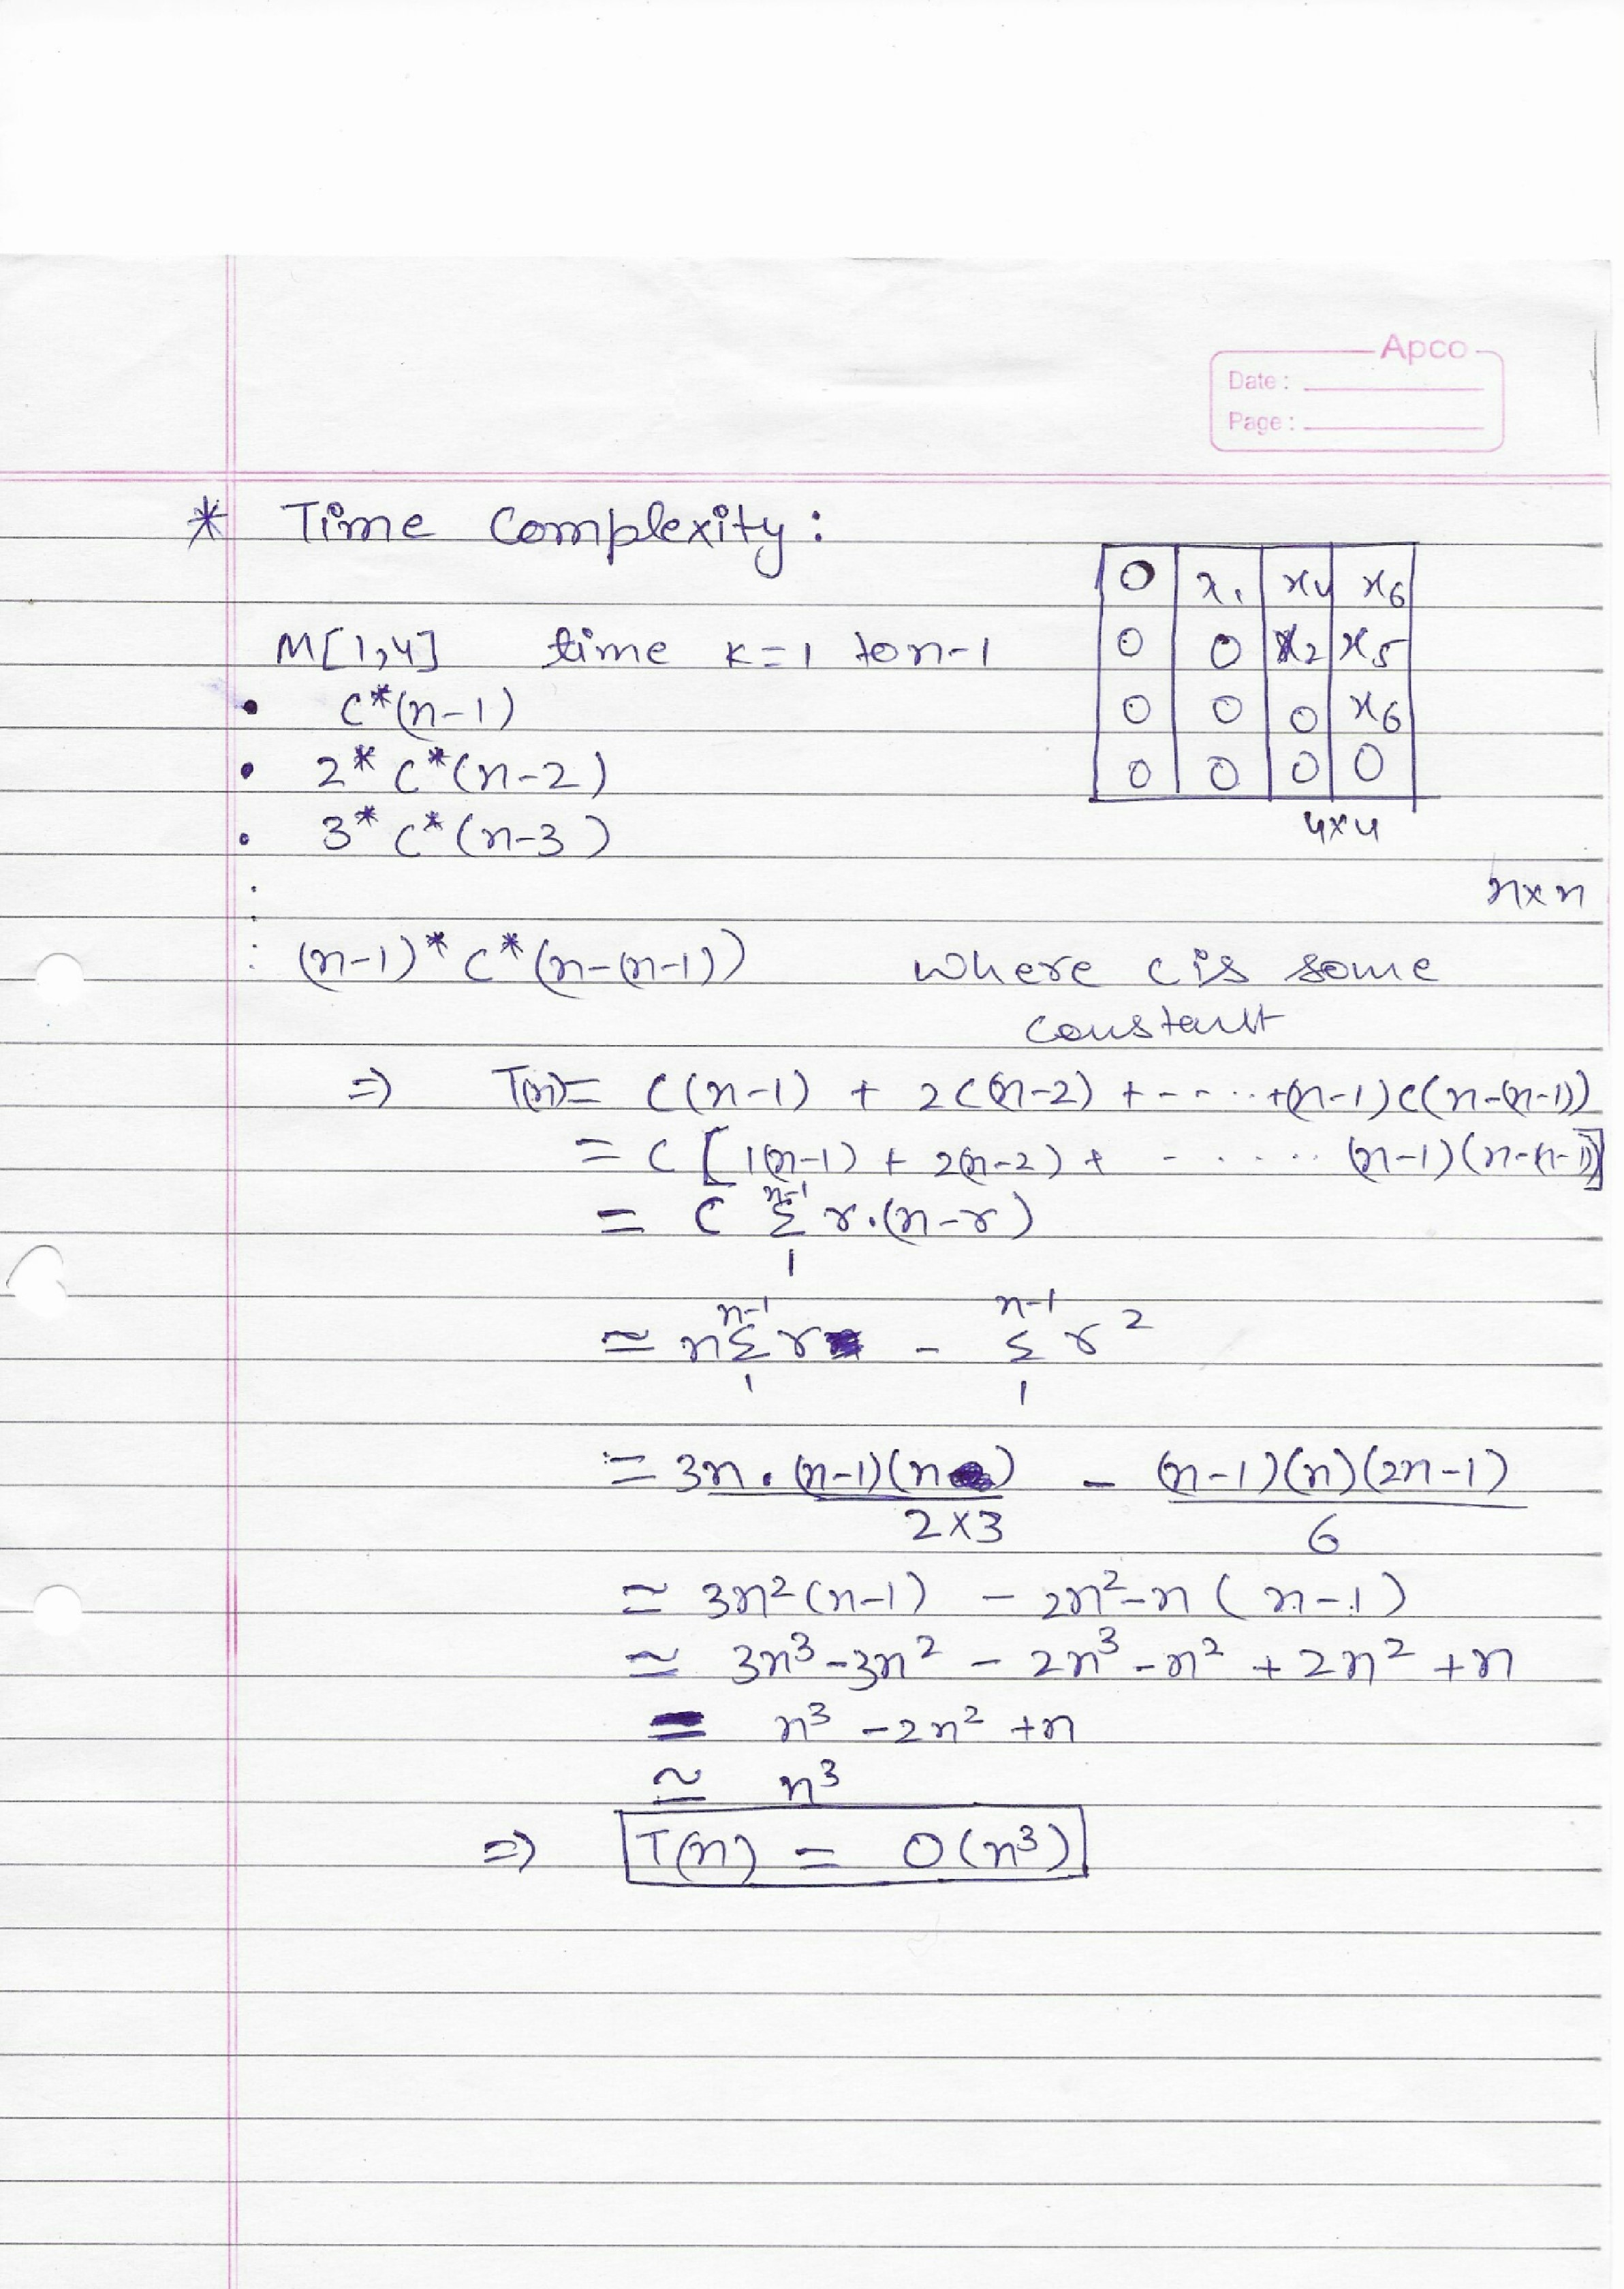 Apco
Date :
Page :
* Time Complexity :
M[1,4] time k=1 to n-1
• C*(n-1)
• 2* C*(n-2)
• 3* C*(n-3)
(n-1)* C*(n-(n-1)) where c is some
constant
0 x1 x4 x6
0 0 x2 x5
0 0 0 x6
0 0 0 0
4x4
n x n
=> T(n)= C(n-1) + 2C(n-2) + - - - .. +(n-1)C(n-(n-1))
= C [ 1(n-1) + 2(n-2) + - . . . . . (n-1)(n-(n-1))]
n-1
= C Σ r.(n-r)
1
n-1 n-1
≃ nΣ r - Σ r²
1 1
= 3n . (n-1)(n) - (n-1)(n)(2n-1)
2x3 6
≃ 3n²(n-1) - 2n²-n (n-1)
≃ 3n³-3n² - 2n³ -n² + 2n² +n
= n³ -2n² +n
≃ n³
=> T(n) = O(n³)